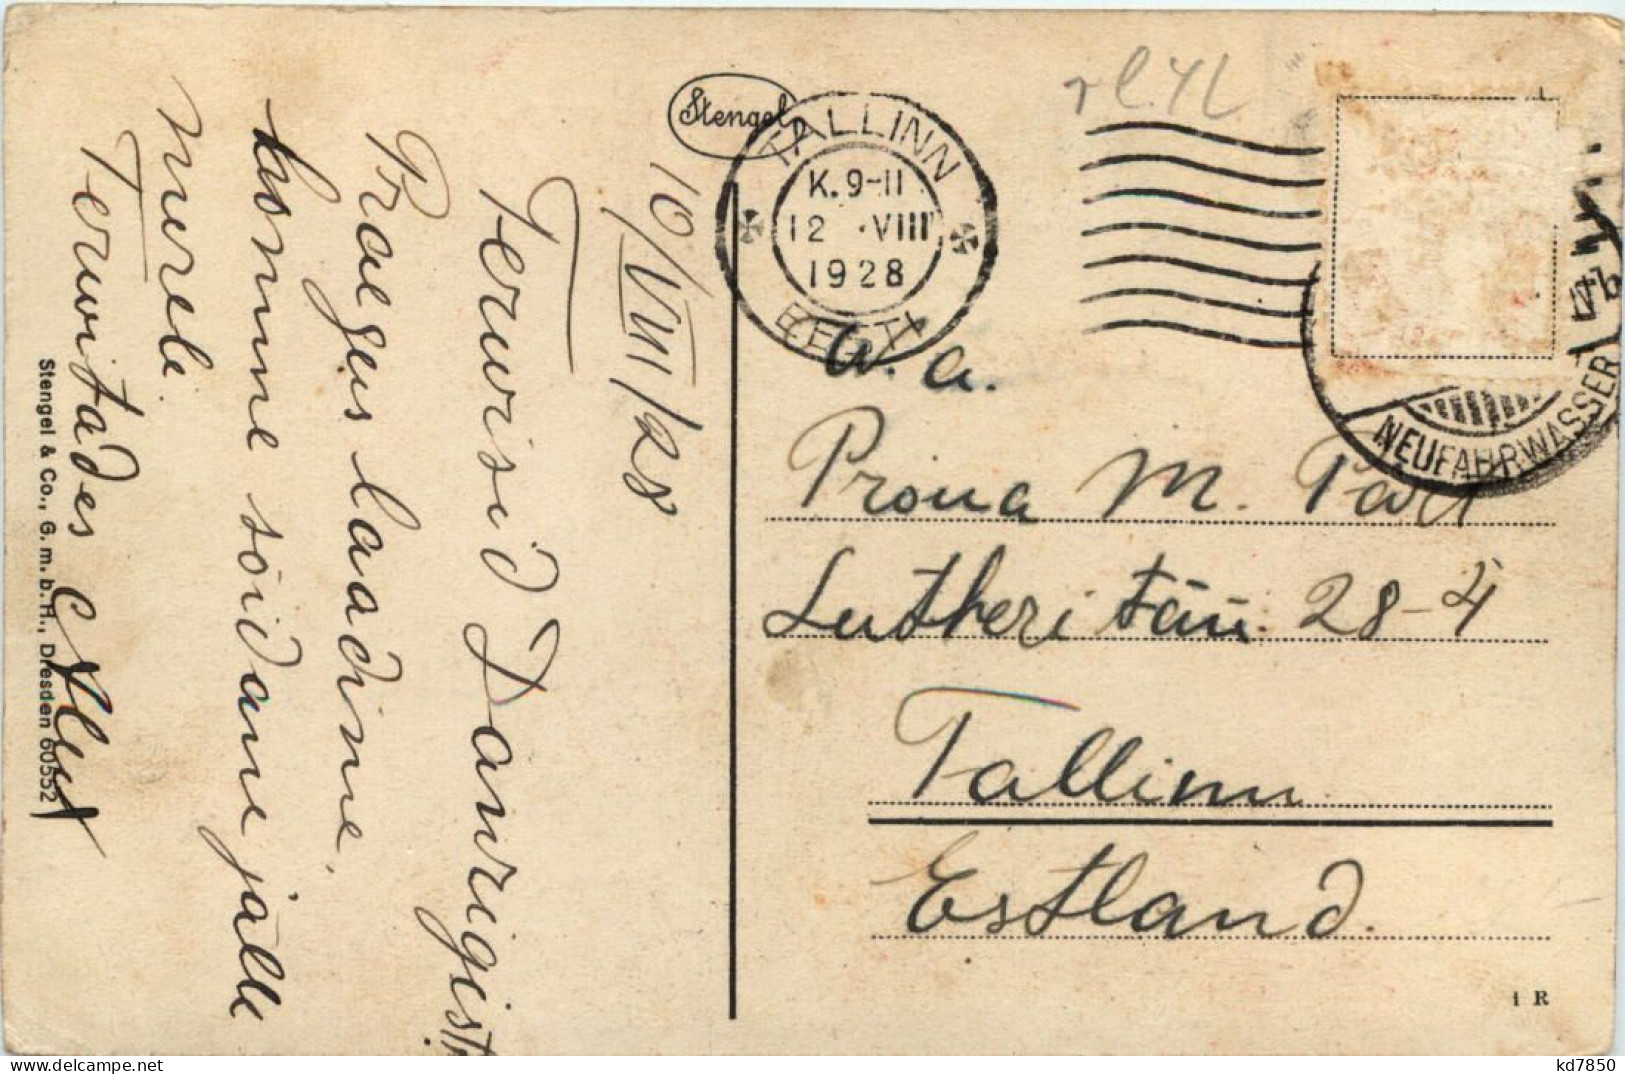 10/VIII/28
Terwisid Danzigist
Praegus laadime,
homme sõidame jälle
merele.
Terwitades
Stengel & Co., G. m. b. H., Dresden 60552
Stengel
TALLINN
K. 9-11
12 · VIII
1928
EESTI
NEUFAHRWASSER
a. a.
Proua M. Pärt
Lutheri tän. 28-4
Tallinn
Estland.
1 R
kd7850